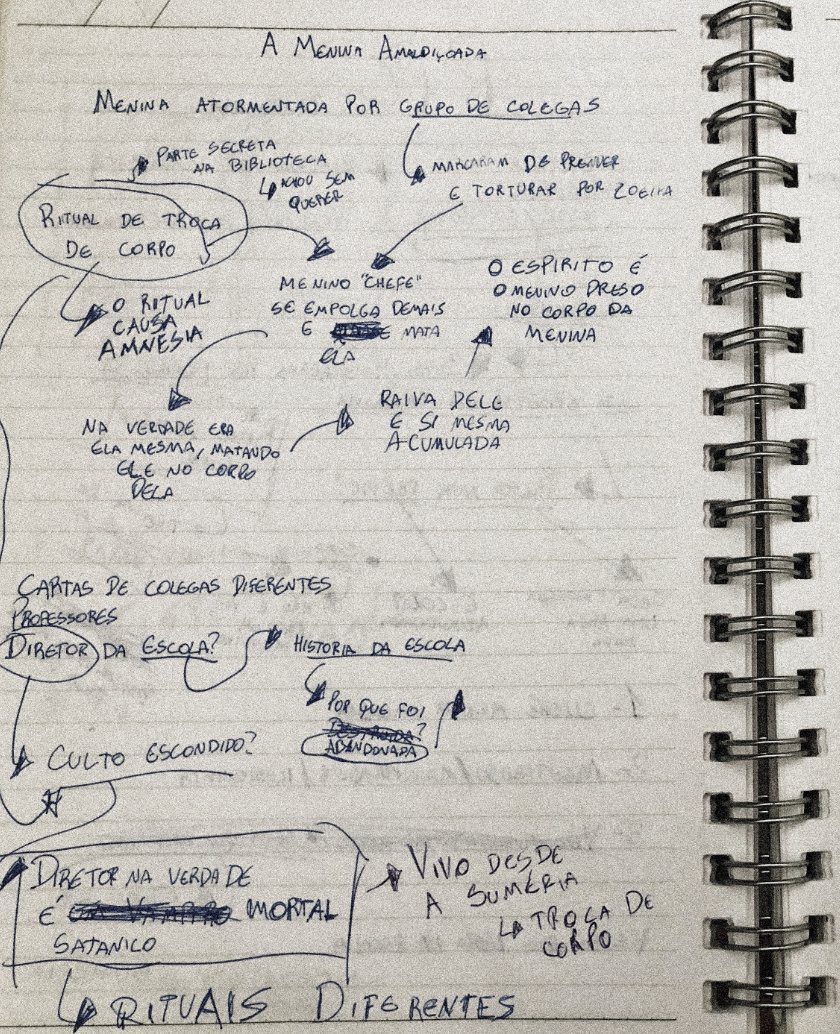 A MENINA AMALDIÇOADA
MENINA ATORMENTADA POR GRUPO DE COLEGAS
PARTE SECRETA
NA BIBLIOTECA
SEM
QUERER
MARCARAM DE PRENDER
E TORTURAR POR ZOEIRA
RITUAL DE TROCA
DE CORPO
O RITUAL
CAUSA
AMNESIA
MENINO "CHEFE"
SE EMPOLGA DEMAIS
E MATA
ELA
O ESPIRITO É
O MENINO PRESO
NO CORPO DA
MENINA
NA VERDADE ERA
ELA MESMA, MATANDO
ELE NO CORPO
DELA
RAIVA DELE
E SI MESMA
ACUMULADA
CARTAS DE COLEGAS DIFERENTES
PROFESSORES
DIRETOR DA ESCOLA?
HISTORIA DA ESCOLA
POR QUE FOI
DESTRUIDA?
ABANDONADA
CULTO ESCONDIDO?
DIRETOR NA VERDADE
É UM VAMPIRO MORTAL
SATANICO
VIVO DESDE
A SUMÉRIA
TROCA DE
CORPO
RITUAIS DIFERENTES